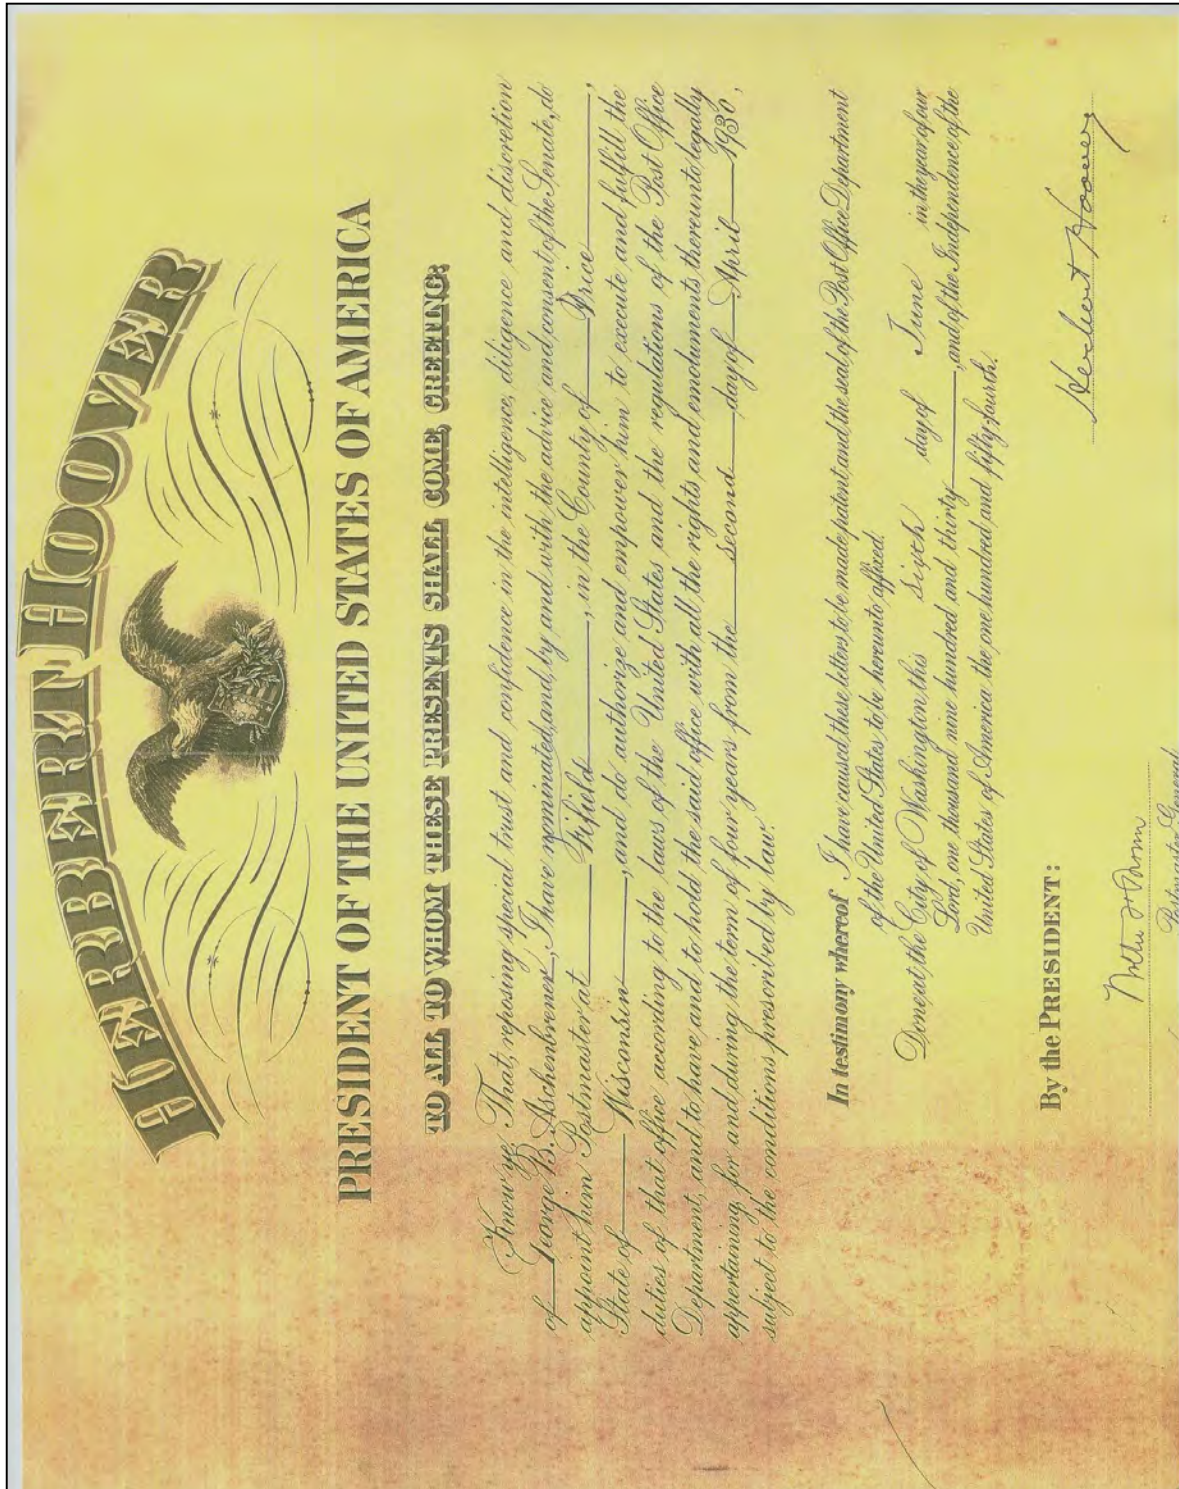 HERBERT HOOVER
PRESIDENT OF THE UNITED STATES OF AMERICA
TO ALL TO WHOM THESE PRESENTS SHALL COME, GREETING:
Know ye, That, reposing special trust and confidence in the intelligence, diligence and discretion
of George B. Aschenbrener, I have nominated, and, by and with the advice and consent of the Senate, do
appoint him Postmaster at Fifield, in the County of Price,
State of Wisconsin, and do authorize and empower him to execute and fulfill the
duties of that office according to the laws of the United States and the regulations of the Post Office
Department, and to have and to hold the said office, with all the rights and emoluments thereunto legally
appertaining, for and during the term of four years from the second day of April 1930,
subject to the conditions prescribed by law.
In testimony whereof I have caused these letters to be made patent, and the seal of the Post Office Department
of the United States to be hereunto affixed.
Done at the City of Washington this sixth day of June in the year of our
Lord, one thousand nine hundred and thirty, and of the Independence of the
United States of America the one hundred and fifty-fourth.
Herbert Hoover
By the PRESIDENT:
Postmaster General